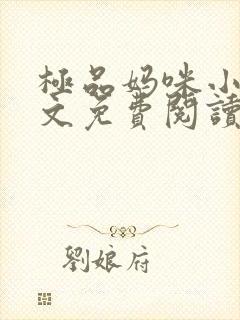 極品妈咪小
文免費閱讀
劉娘府